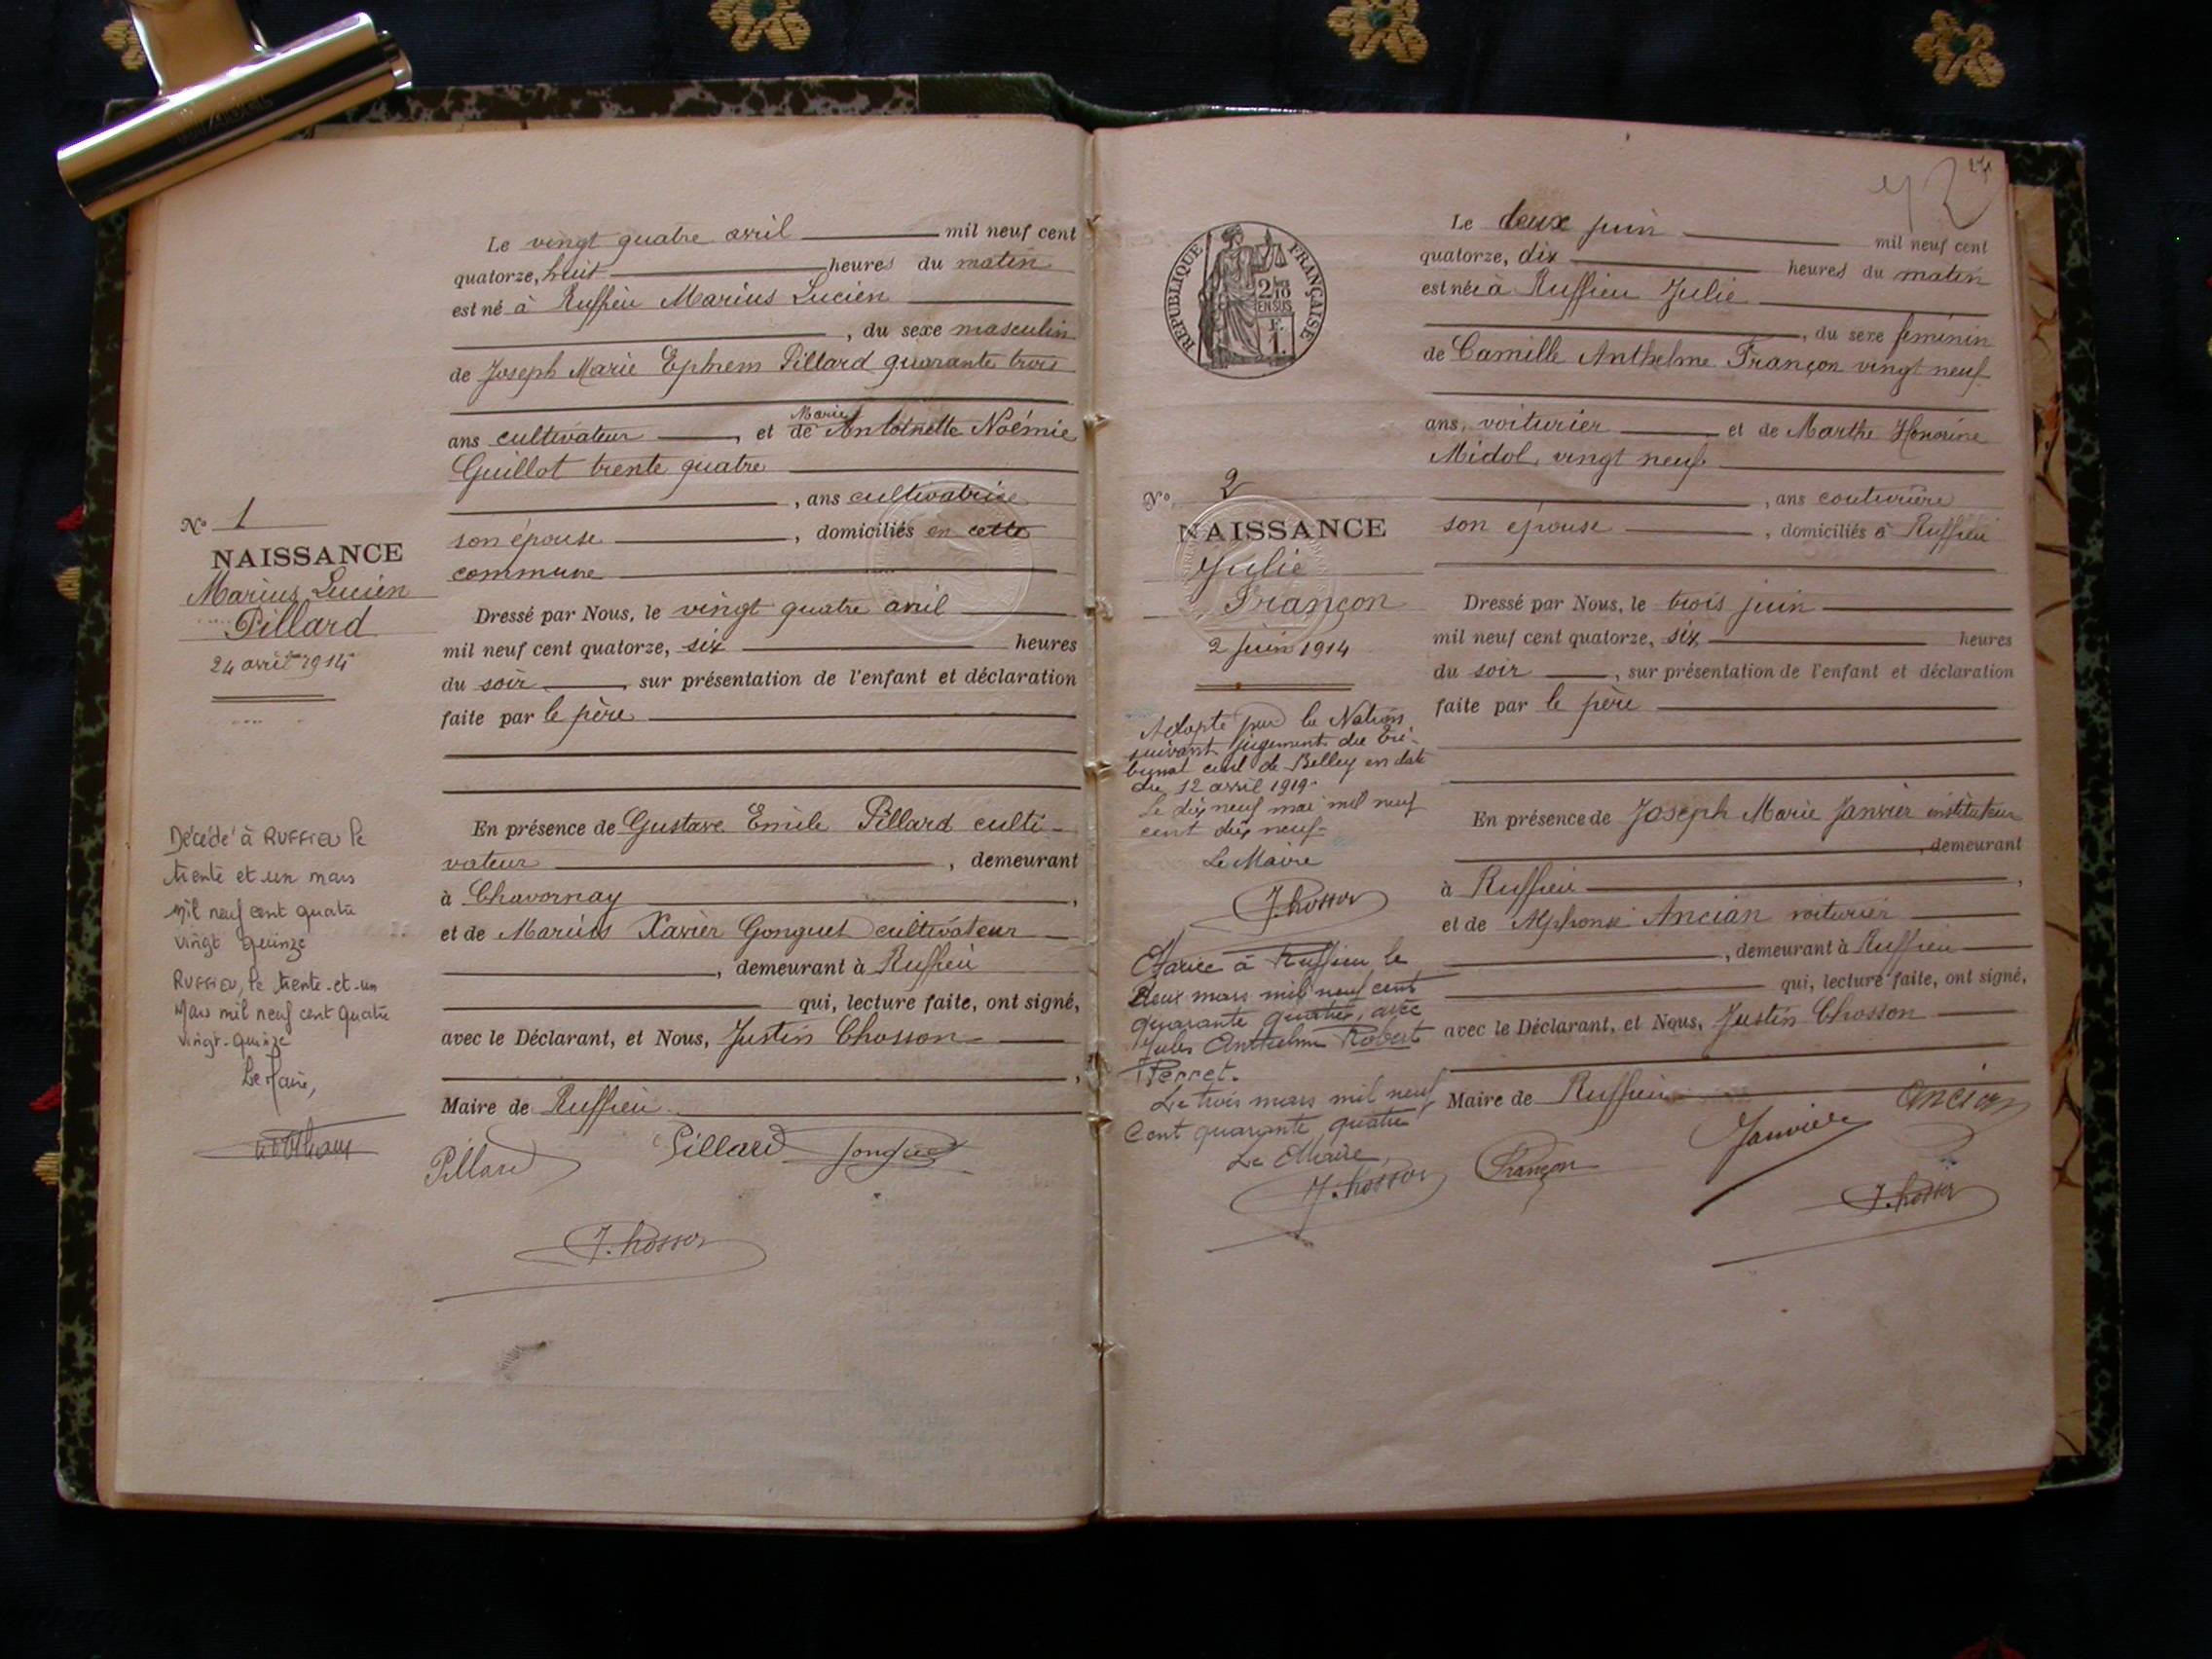 Le vingt quatre avril mil neuf cent
quatorze, huit heures du matin
est né à Ruffieu Marius Lucien
, du sexe masculin
de Joseph Marie Ephrem Pillard quarante trois
ans cultivateur , et de Marie Antoinette Noémie
Guillot trente quatre
, ans cultivatrice
son épouse , domiciliés en cette
commune
Dressé par Nous, le vingt quatre avril
mil neuf cent quatorze, six heures
du soir , sur présentation de l'enfant et déclaration
faite par le père
En présence de Gustave Emile Pillard culti-
vateur , demeurant
à Chavornay ,
et de Marius Xavier Gonguet cultivateur
, demeurant à Ruffieu
qui, lecture faite, ont signé,
avec le Déclarant, et Nous, Justin Chosson
,
Maire de Ruffieu
Pillard Pillard Gonguet
J. Chosson
No 1
NAISSANCE
Marius Lucien
Pillard
24 avril 1914
Décédé à RUFFIEU le
trente et un mars
mil neuf cent quatre
vingt quinze
RUFFIEU, le trente-et-un
Mars mil neuf cent quatre
vingt-quinze
Le Maire,
RÉPUBLIQUE FRANÇAISE
2/10
EN SUS
F.
1.
No 2
NAISSANCE
Julie
Françon
2 Juin 1914
Adopté par la Nation
suivant jugement du tri-
bunal civil de Belley en date
du 12 avril 1919.
Le dix neuf mai mil neuf
cent dix neuf-
Le Maire
J. Chosson
Mariée à Ruffieu le
deux mars mil neuf cent
quarante quatre, avec
Jules Anthelme Robert
Perret.
Le trois mars mil neuf
Cent quarante quatre
Le Maire,
J. Chosson
27
Le deux juin mil neuf cent
quatorze, dix heures du matin
est née à Ruffieu Julie
, du sexe féminin
de Camille Anthelme Françon vingt neuf
ans, voiturier et de Marthe Honorine
Midol, vingt neuf
, ans couturière
son épouse , domiciliés à Ruffieu
Dressé par Nous, le trois juin
mil neuf cent quatorze, six heures
du soir , sur présentation de l'enfant et déclaration
faite par le père
En présence de Joseph Marie Janvier instituteur
, demeurant
à Ruffieu ,
et de Alphonse Ancian voiturier
, demeurant à Ruffieu
qui, lecture faite, ont signé,
avec le Déclarant, et Nous, Justin Chosson
Maire de Ruffieu
Ancian
Janvier
Françon
J. Chosson